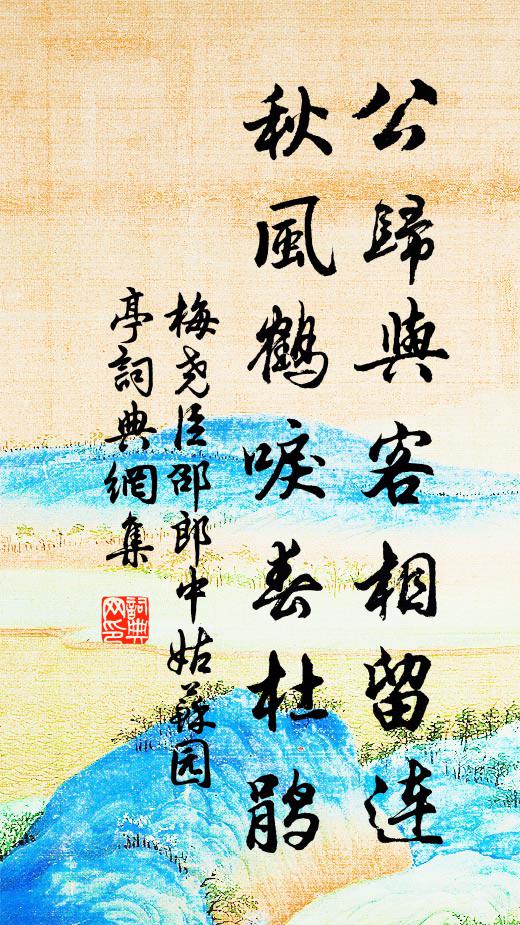 公歸與客相留連
秋風鶴唳春杜鵑
梅尧臣邵郎中姑蘇园
亭詞典網集
詞典
网印